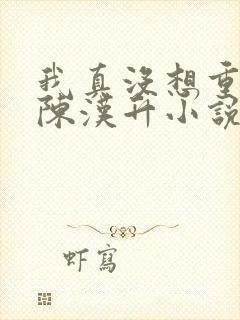 我真沒想重
陳漢升小說
虾寫